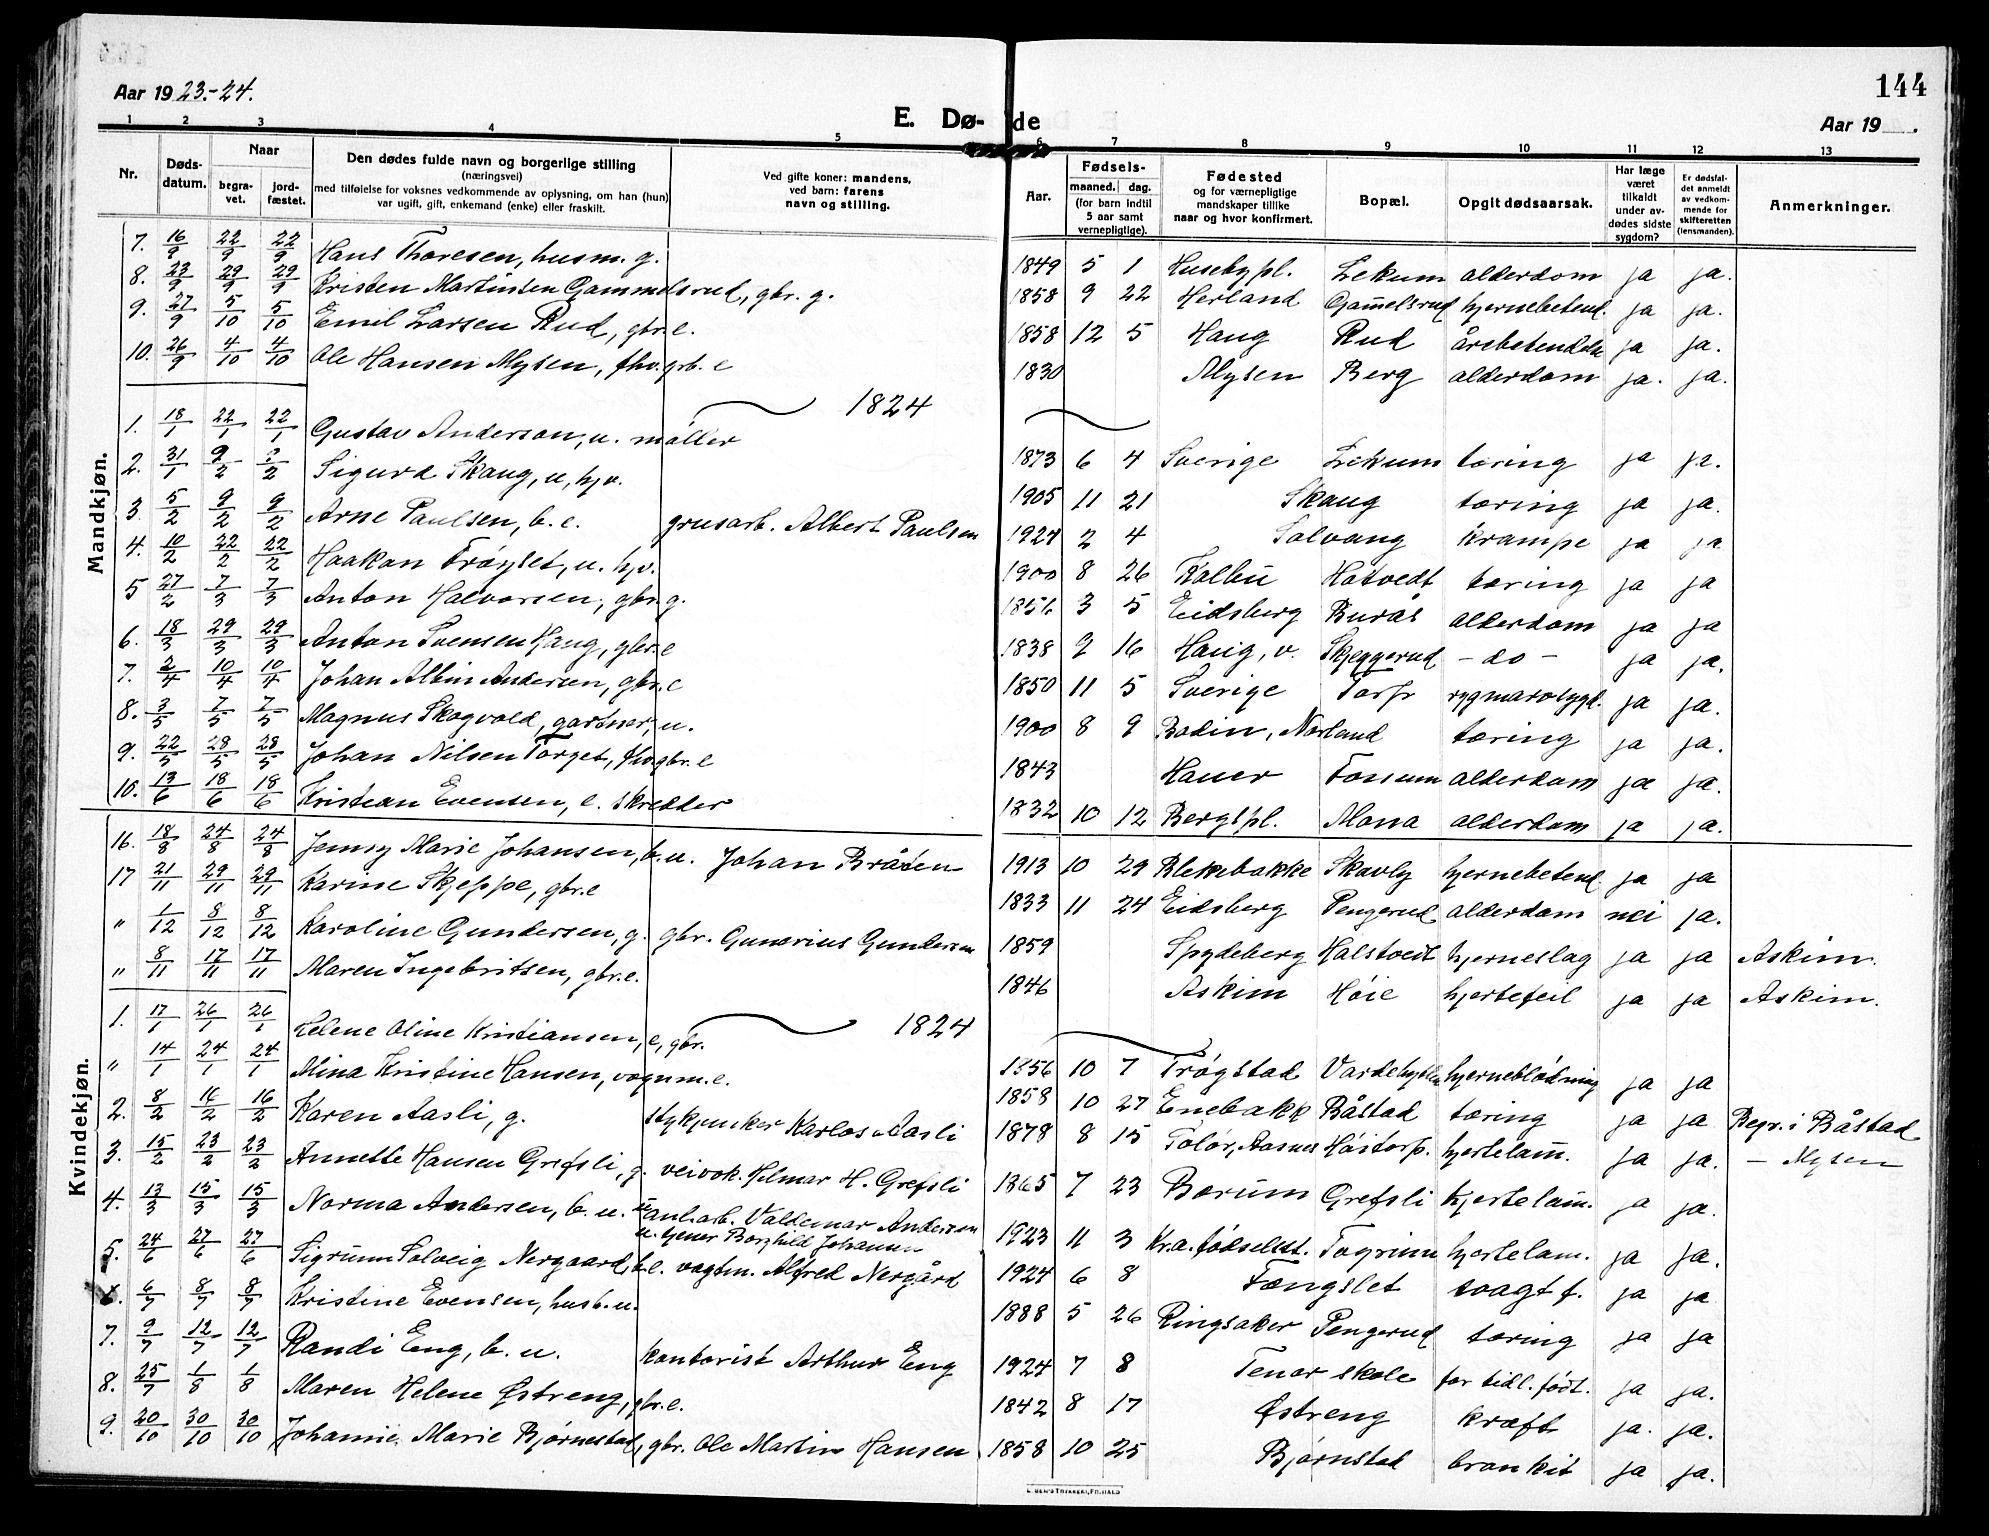 144
Aar 1923.-24.
E. Dø- de
Aar 19 .
1 2 3 4 5 6 7 8 9 10 11 12 13
Nr. Døds-datum. Naar begra-vet. jord-fæstet. Den dødes fulde navn og borgerlige stilling (næringsvei) med tilføielse for voksnes vedkommende av oplysning, om han (hun) var ugift, gift, enkemand (enke) eller fraskilt. Ved gifte koner: mandens, ved barn: farens navn og stilling. Aar. Fødsels- maaned. dag. (for barn indtil 5 aar samt vernepligtige). Fødested og for værnepligtige mandskaper tillike naar og hvor konfirmert. Bopæl. Opgit dødsaarsak. Har læge været tilkaldt under av-dødes sidste sygdom? Er dødsfal-det anmeldt av vedkom-mende for skifteretten (lensmanden). Anmerkninger.
Mandkjøn.
7. 16/9 22/9 22/9 Hans Thoresen, husm. g. 1849 5 1 Huseby pl. Lekum alderdom ja ja.
8. 23/9 29/9 29/9 Kristen Martinsen Gammelsrud, gbr. g. 1858 9 22 Herland Gam̄elsrud hjernebetend. ja ja.
9. 27/9 5/10 5/10 Emil Larsen Rud, gbr. e. 1858 12 5 Haug Rud ja ja.
10. 26/9 4/10 4/10 Ole Hansen Mysen, fhv. grb. e 1830 Mysen Berg alderdom ja. ja.
1824
1. 18/1 22/1 22/1 Gustav Anderson, u. møller 1873 6 4 Sverige Lekum tæring ja ja.
2. 31/1 9/2 Sigurd Skaug, u, hjv. 1905 11 21 Skaug tæring ja ja.
3. 5/2 9/2 9/2 Arne Paulsen, b. e. grusarb. Albert Paulsen 1924 2 4 Solvang krampe ja ja
4. 10/2 22/2 22/2 Haakon Trøyset, u. hjv. 1900 8 26 Kalbu Hotvedt tæring ja ja
5 27/2 7/3 7/3 Anton Halvorsen, gbr. g. 1856 3 5 Eidsberg Burås alderdom ja ja
6. 18/3 29/3 29/3 Anton Svensen Haug, gbr. e 1838 2 16 Haug, v. Skjeggerud - do - ja ja.
7. 2/4 10/4 10/4 Johan Albin Andersen, gbr. e 1850 11 5 Sverige Torp rygmarvsygd. ja ja.
8. 3/5 7/5 7/5 Magnus Skogvold, gartner, u. 1900 8 9 Bodin, Norland tæring ja ja.
9. 22/5 28/5 28/5 Johan Nilsen Torget, fhv gbr. e 1843 Haner Fossum alderdom ja ja.
10. 13/6 18/6 18/6 Kristian Evensen, e. skredder 1832 10 12 Bergspl. Mona alderdom ja ja.
Kvindekjøn.
16. 18/8 24/8 24/8 Jenny Marie Johansen, b. u. Johan Bråten 1913 10 29 Blekebakke Skavly hjernebetend. ja ja
17 21/11 29/11 29/11 Karine Skjeppe, gbr. e 1833 11 24 Eidsberg Pengerud alderdom nei ja.
" 1/12 8/12 8/12 Karoline Gundersen, g. gbr. Gunerius Gundersen 1859 Spydeberg Halstvedt hjerneslag ja ja Askim.
" 8/11 17/11 17/11 Maren Ingebritsen, gbr. e. 1846 Askim Höie hjertefeil ja ja Askim.
1824
1. 17/1 26/1 26/1 Helene Oline Kristiansen, e, gbr. 1856 10 7 Trøgstad hjerneblødning ja ja
" 14/1 24/1 24/1 Mina Kristine Hansen, vognm. e. 1858 10 27 Enebakk Båstad tæring ja ja Begr. i Båstad
2. 8/2 16/2 16/2 Karen Aasli, g. stykjunker Karlos Aasli 1878 8 15 hjertelam̄. ja ja. - Mysen
3. 15/2 23/2 23/2 Annette Hansen Grefsli, g. veivok. Hilmar H. Grefsli 1865 7 23 Bærum Grefsli hjertelam̄. ja ja.
4. 13/3 15/3 15/3 Norma Andersen, b. u. Valdemar Andersen u. Borghild Johansen 1923 11 3 Kr.a. fødselsst. hjertelam. ja ja.
5. 24/6 27/6 27/6 Sigrunn Solveig Nergaard, b. e. vagtm. Alfred Nergård 1924 6 8 Fængslet svagt f. ja ja
6. 6/7 8/7 8/7 Kristine Evensen, husb. u. 1888 5 26 Ringsaker Pengerud tæring ja ja
7. 9/7 12/7 12/7 Randi Eng, b. u. kontorist Arthur Eng 1924 7 8 Tenor skole for tidl. født. ja ja.
8. 25/7 1/8 1/8 Maren Helene Østreng, gbr. e. 1842 8 17 Østreng kræft ja. ja.
9. 20/10 30/10 30/10 Johanne Marie Bjørnestad, gbr. Ole Martin Hansen 1858 10 25 Bjørnstad bronkit ja ja.